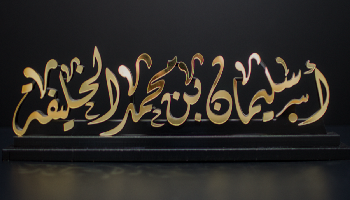 أ.سليمان بن محمد الخليفة